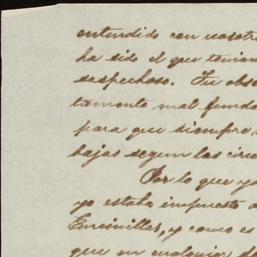 entendido con nosotr
ha sido el que tenian
sospechoso. Tu obse
tamente mal funda
para que siempre
bajas segun las circu
Por lo que ya
yo estaba impuesto a
Encinillas, y como es
que en cualquier de